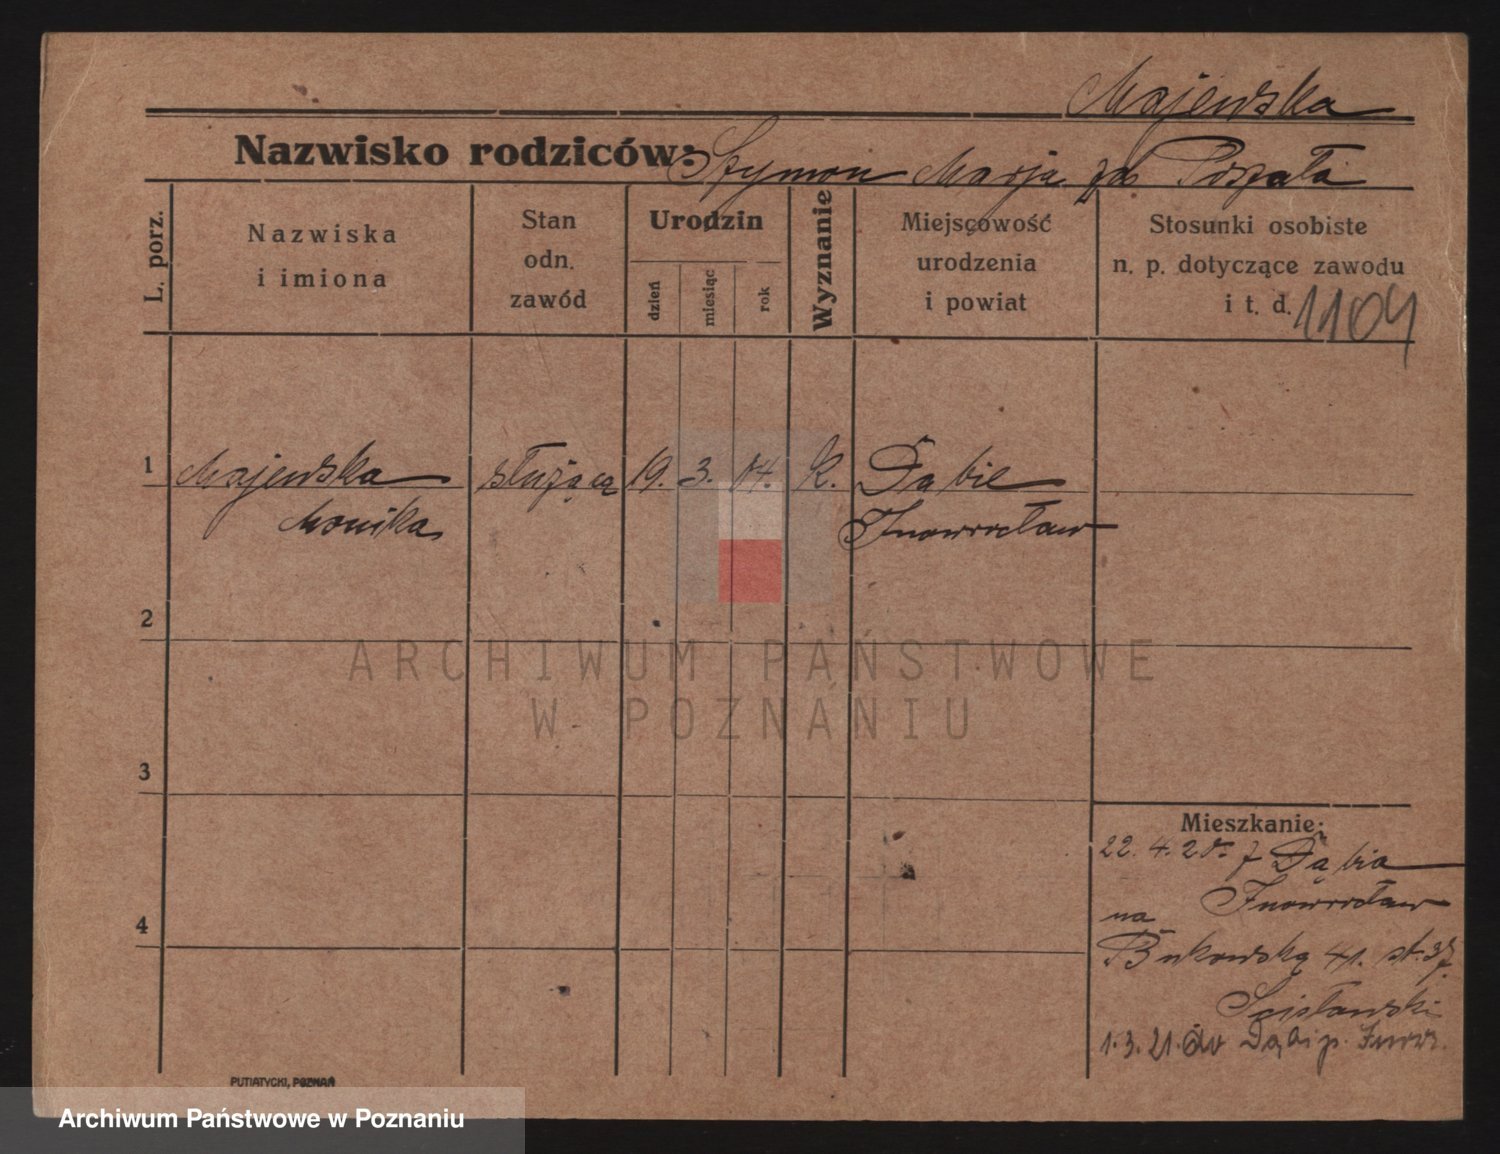 Majewska
Nazwisko rodziców: Szymon Marja zd.
L. porz.
Nazwiska
i imiona
Stan
odn.
zawód
Urodzin
dzień
miesiąc
rok
Wyznanie
Miejscowość
urodzenia
i powiat
Stosunki osobiste
n. p. dotyczące zawodu
i t. d.
1104
1 Majewska służąca 19. 3. 04. K. Dąbie
Monika Inowrocław
2
3
4
Mieszkanie:
22. 4. 20. z Dąbia
Inowrocław
na
Bukowską 41.
1. 3. 21. do p. Inowr.
PUTIATYCKI, POZNAŃ
ARCHIWUM PAŃSTWOWE
W POZNANIU
Archiwum Państwowe w Poznaniu